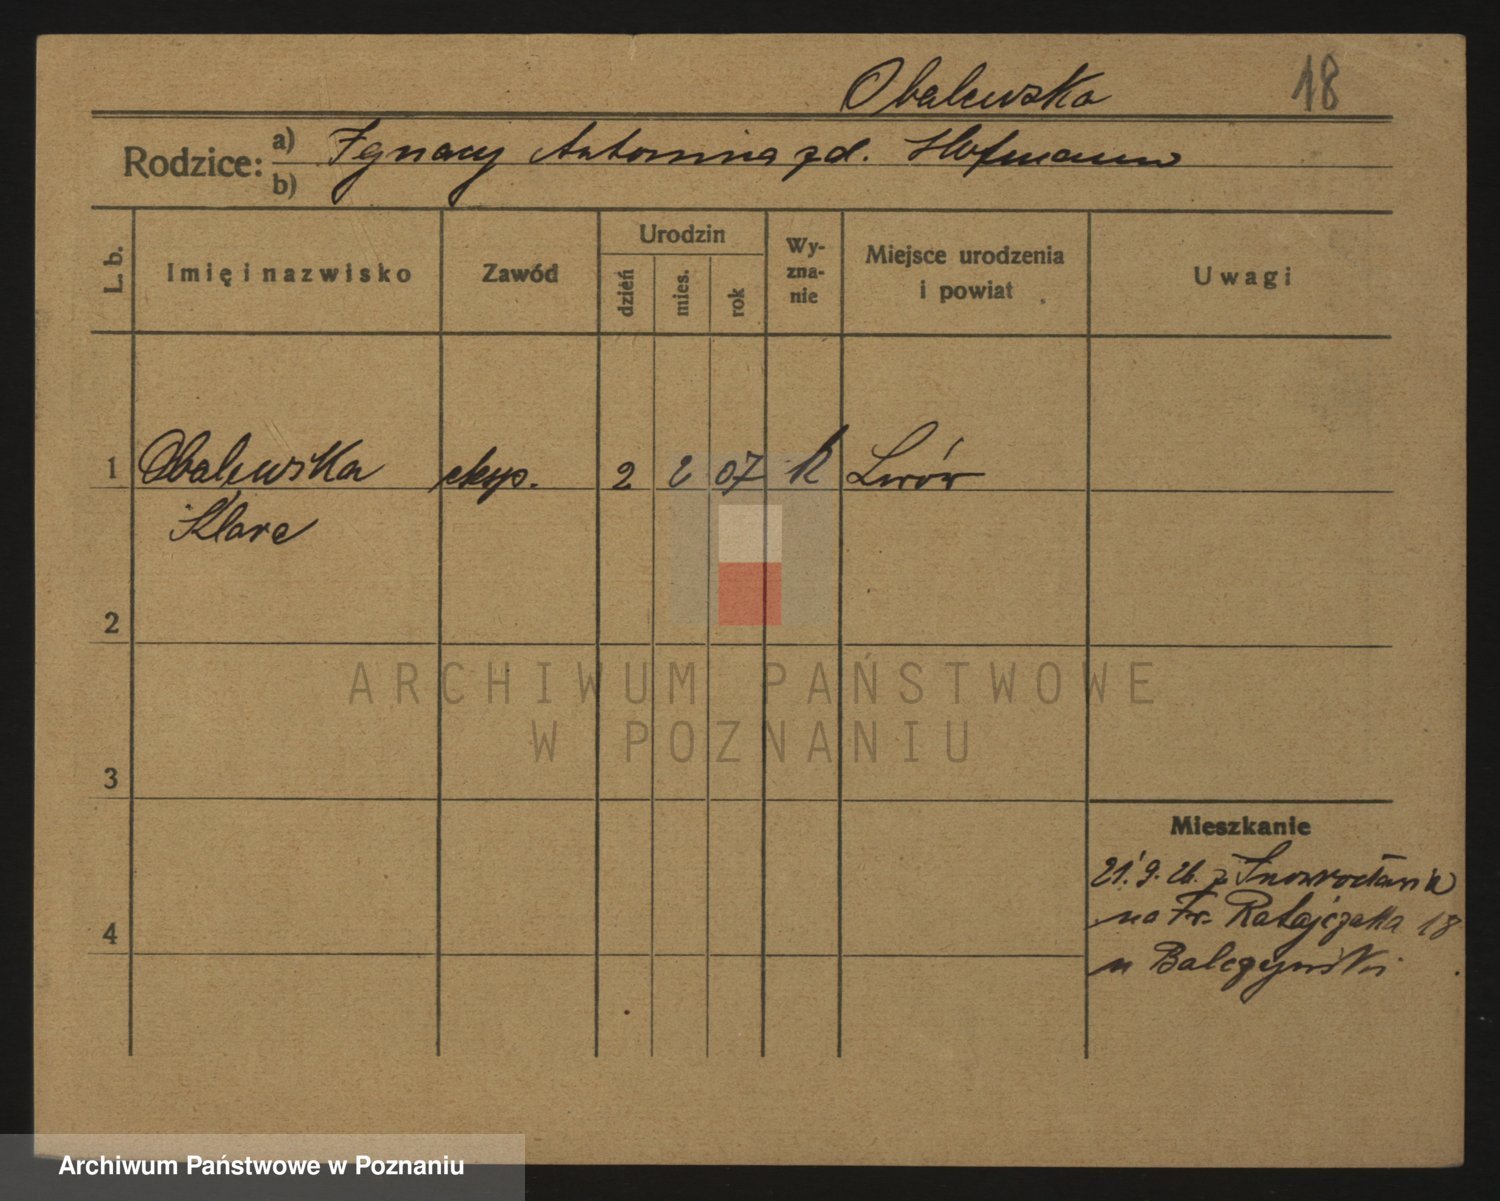 Obalewska 18
Rodzice: a) Ignacy Antonina zd. Hofmann
b)
L. b. Imię i nazwisko Zawód Urodzin dzień mies. rok Wy-zna-nie Miejsce urodzenia i powiat Uwagi
1 Obalewska eksp. 2 2 07 k Lwów
Klara
2
3
Mieszkanie
21.9.26. z Inowrocławia
na Fr. Ratajczaka 18
4
u Balczyński
ARCHIWUM PAŃSTWOWE
W POZNANIU
Archiwum Państwowe w Poznaniu